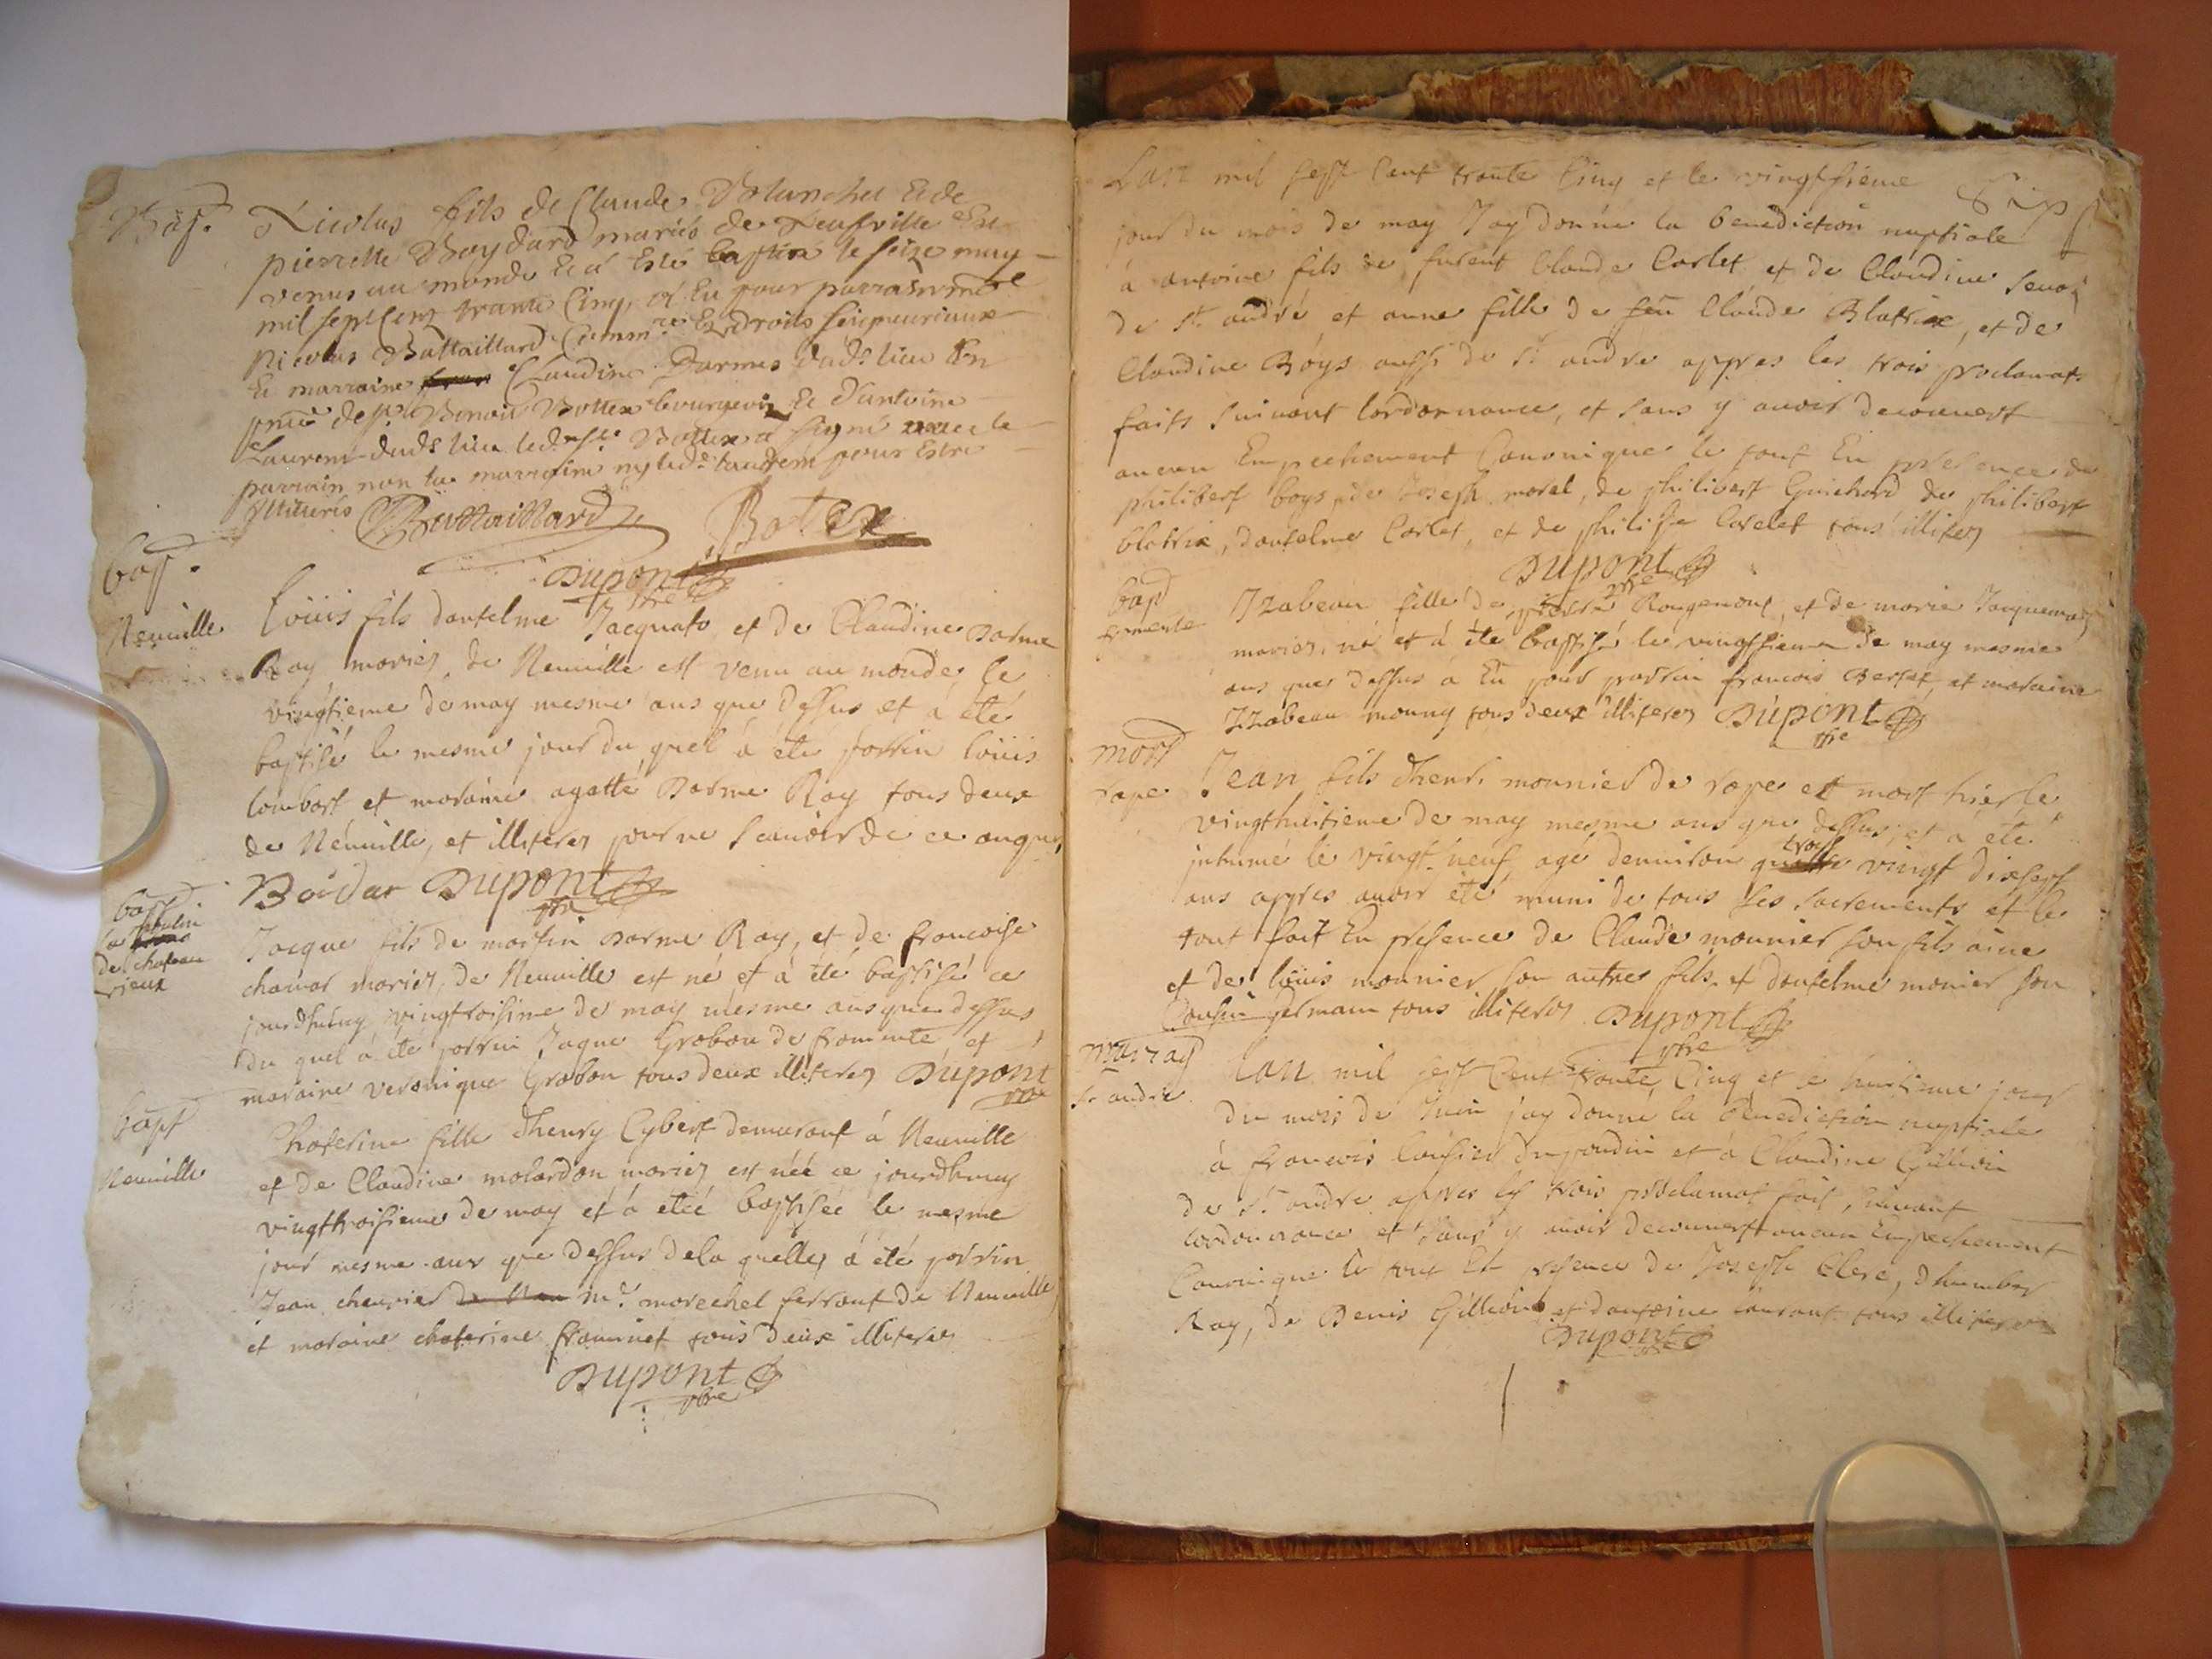 Bap.
Nicolas fils de Claude Blanchet Et de
pierrette Boydard mariés de Neufville Est
venus au monde Et a Esté baptisé le seize may
mil sept Cent trante Cinq, a Eu pour parrain
Nicolas Battaillard Commre. Es droits seigneuriaux
Et marraine Claudine Darmes dudt. lieu En
pnce de Sr. Benoit Bottex bourgeois Et d'antoine
Laurent dudt lieu led. Sr Bottex a signé avec le
parrain non la marraine ny led. laurent pour Estre
illiterés Battaillard Botex
Dupont ptre
bap.
Neuville
loüis fils dantelme Jacquato et de Claudine darme
Ray mariez de Neuville est venu au monde le
vingtieme de may mesme ans que dessus et à été
baptisé le mesme jour du quel à ete porrin loüis
lombart et moraine agatte Darme Ray tous deux
de Neuville, et illiterez pour ne scauoir de ce anquis
Boidar Dupont ptre
bapt
la
de chateau
vieux
Jacque fils de martin Darme Ray, et de francoise
chanar mariez, de Neuville est né et à été baptisé ce
jourdhuy vingtroisime de may mesme ans que dessus
du quel à été porrin Jaque Grobon de fromente et
moraine veronique Grobon tous deux illiterez Dupont
ptre
bapt
Neuville
Chaterine fille dhenry Cybert demurant à Neuville
et de Claudine molardon mariez est néé ce jourdhuy
vingttroisieme de may et à etéé baptiséé le mesme
jour mesme ans que dessus dela quelle à été porrin
Jean cheurier de Neu md. marechel ferrant de Neuville
et moraine chaterine frominet touis deux illiteres
Dupont
ptre
Lan mil sept Cent trante Cinq et le vingtsieme
jour du mois de may Jay donné la benediction nuptiale
à antoine fils de furent Claude Carlet et de Claudine
de St. andré et anne fille de feu Claude Blatrix, et de
Claudine Boys aussi de St andre appres les trois proclamat.
faits suivant lordornance, et sans y avoir decouuert
aucun Empechement Canonique le tout En presence de
philibert boys de Joseph morel, de philibert Guichard de philibert
blatrix, dantelme Carlet, et de philipe Carelet tous illiterez
Dupont
ptre
bap
fromente
Izabeau fille de pierre Rougemont, et de marie Jacquemet
mariez, né et à ète baptisé le vingtsieme de may mesme
ans que dessus à Eü pour parrin francois Bertet, et moraine
Izabeau mouny tous deux illiterez Dupont
ptre
mort
rape
Jean fils dhenri mounier de rape est mort hier le
vingthuitieme de may mesme ans que dessus, et a ete
inhumé le vingt neuf agé denuiron quatre trois vingt dixsept
ans appres auoir été muni de tous les sacrements et le
tout fait En presence de Claude mounier son fils ainé
et de loüis mounier son autres fils et dantelme monier son
Cousin germain tous illiteres Dupont
ptre
mariag
St andre
lan mil sept Cent trante Cinq et le huitieme jour
du mois de Juin jay donné la benediction nuptiale
à francois du poudin et à Claudine Gilloin
de St. andre appres les trois proclamat fait, suivant
lordonnance et sans y auoir decouuert aucun Empechement
Canonique le tout En presence de Joseph Clerc, dhumber
Ray, de Denis Gilloin et dantoine tous illiterez
Dupont
ptre